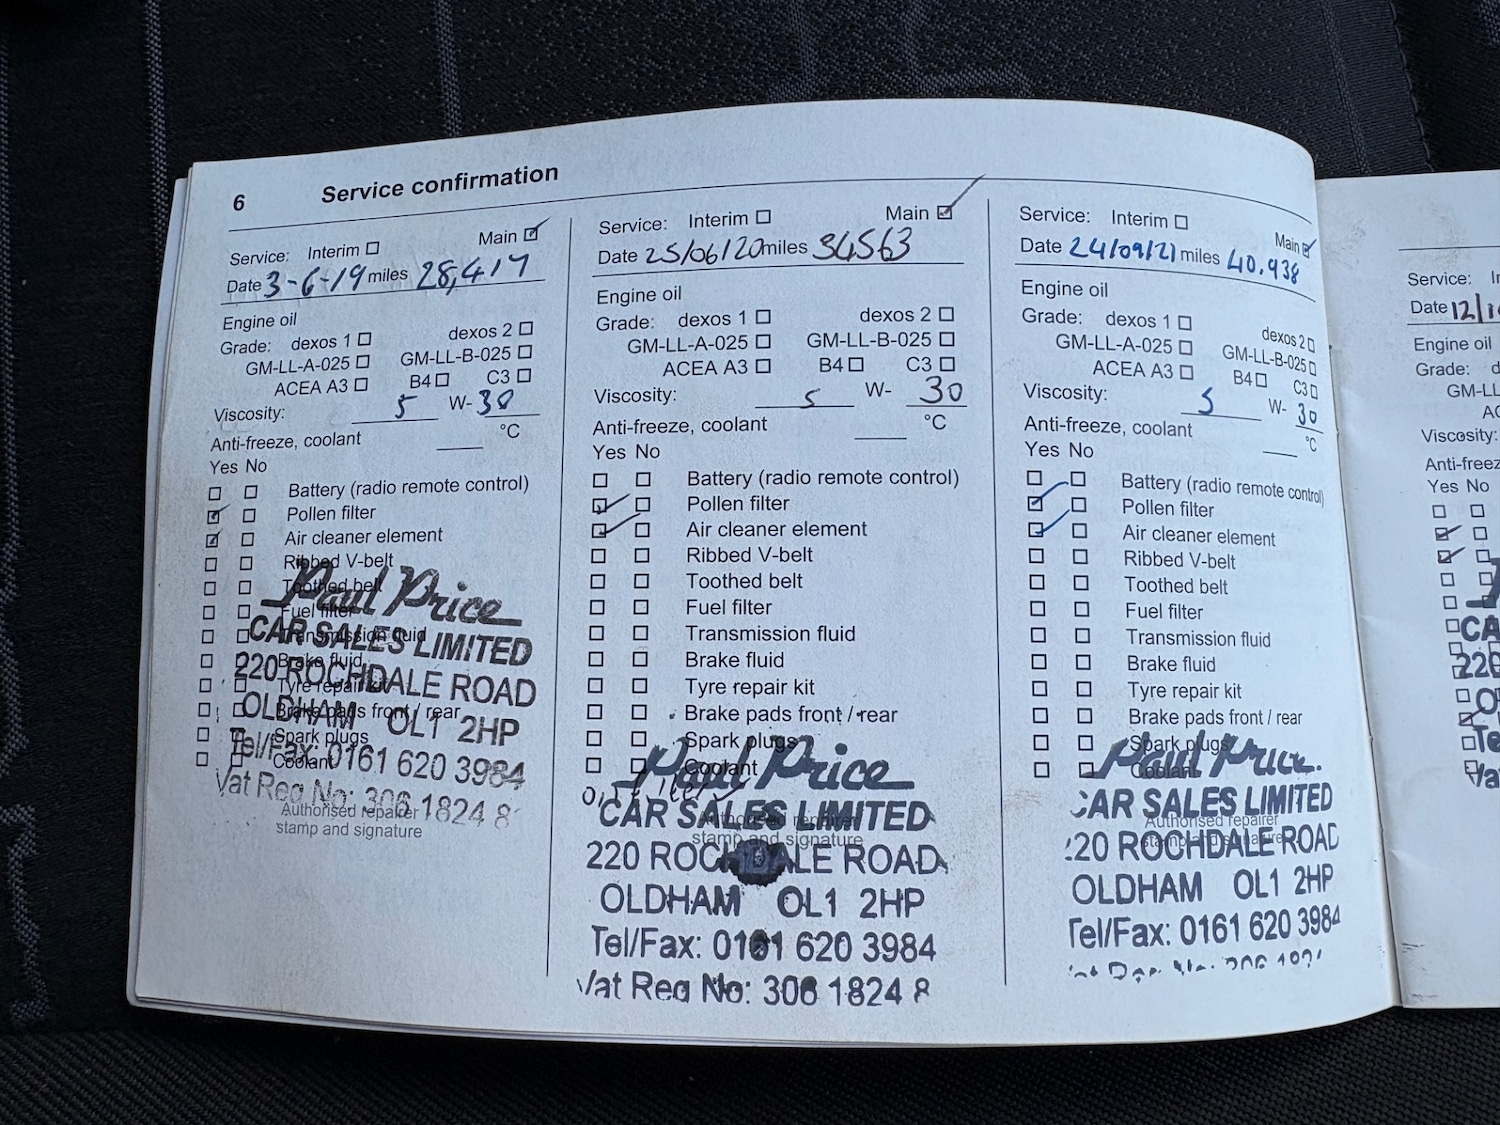 6 Service confirmation
Service: Interim Main
Date 3-6-19 miles 28,417
Engine oil
Grade: dexos 1 dexos 2
GM-LL-A-025 GM-LL-B-025
ACEA A3 B4 C3
Viscosity: 5 W- 30
Anti-freeze, coolant °C
Yes No
Battery (radio remote control)
Pollen filter
Air cleaner element
Ribbed V-belt
Toothed belt
Fuel filter
Transmission fluid
Brake fluid
Tyre repair kit
Brake pads front / rear
Spark plugs
Coolant
Paul Price
CAR SALES LIMITED
220 ROCHDALE ROAD
OLDHAM OL1 2HP
Tel/Fax: 0161 620 3984
Vat Reg No: 306 1824 8
Authorised repairer
stamp and signature
Service: Interim Main
Date 25/06/20 miles 34563
Engine oil
Grade: dexos 1 dexos 2
GM-LL-A-025 GM-LL-B-025
ACEA A3 B4 C3
Viscosity: 5 W- 30
Anti-freeze, coolant °C
Yes No
Battery (radio remote control)
Pollen filter
Air cleaner element
Ribbed V-belt
Toothed belt
Fuel filter
Transmission fluid
Brake fluid
Tyre repair kit
Brake pads front / rear
Spark plugs
Coolant
Paul Price
CAR SALES LIMITED
Authorised repairer
stamp and signature
220 ROCHDALE ROAD
OLDHAM OL1 2HP
Tel/Fax: 0161 620 3984
Vat Reg No: 306 1824 8
Service: Interim Main
Date 24/09/21 miles 40.938
Engine oil
Grade: dexos 1 dexos 2
GM-LL-A-025 GM-LL-B-025
ACEA A3 B4 C3
Viscosity: 5 W- 30
Anti-freeze, coolant °C
Yes No
Battery (radio remote control)
Pollen filter
Air cleaner element
Ribbed V-belt
Toothed belt
Fuel filter
Transmission fluid
Brake fluid
Tyre repair kit
Brake pads front / rear
Spark plugs
Coolant
Paul Price
CAR SALES LIMITED
Authorised repairer
stamp and signature
220 ROCHDALE ROAD
OLDHAM OL1 2HP
Tel/Fax: 0161 620 3984
Service:
Date 12/1
Engine oil
Grade:
GM-LL
Viscosity:
Anti-freez
Yes No
CA
220